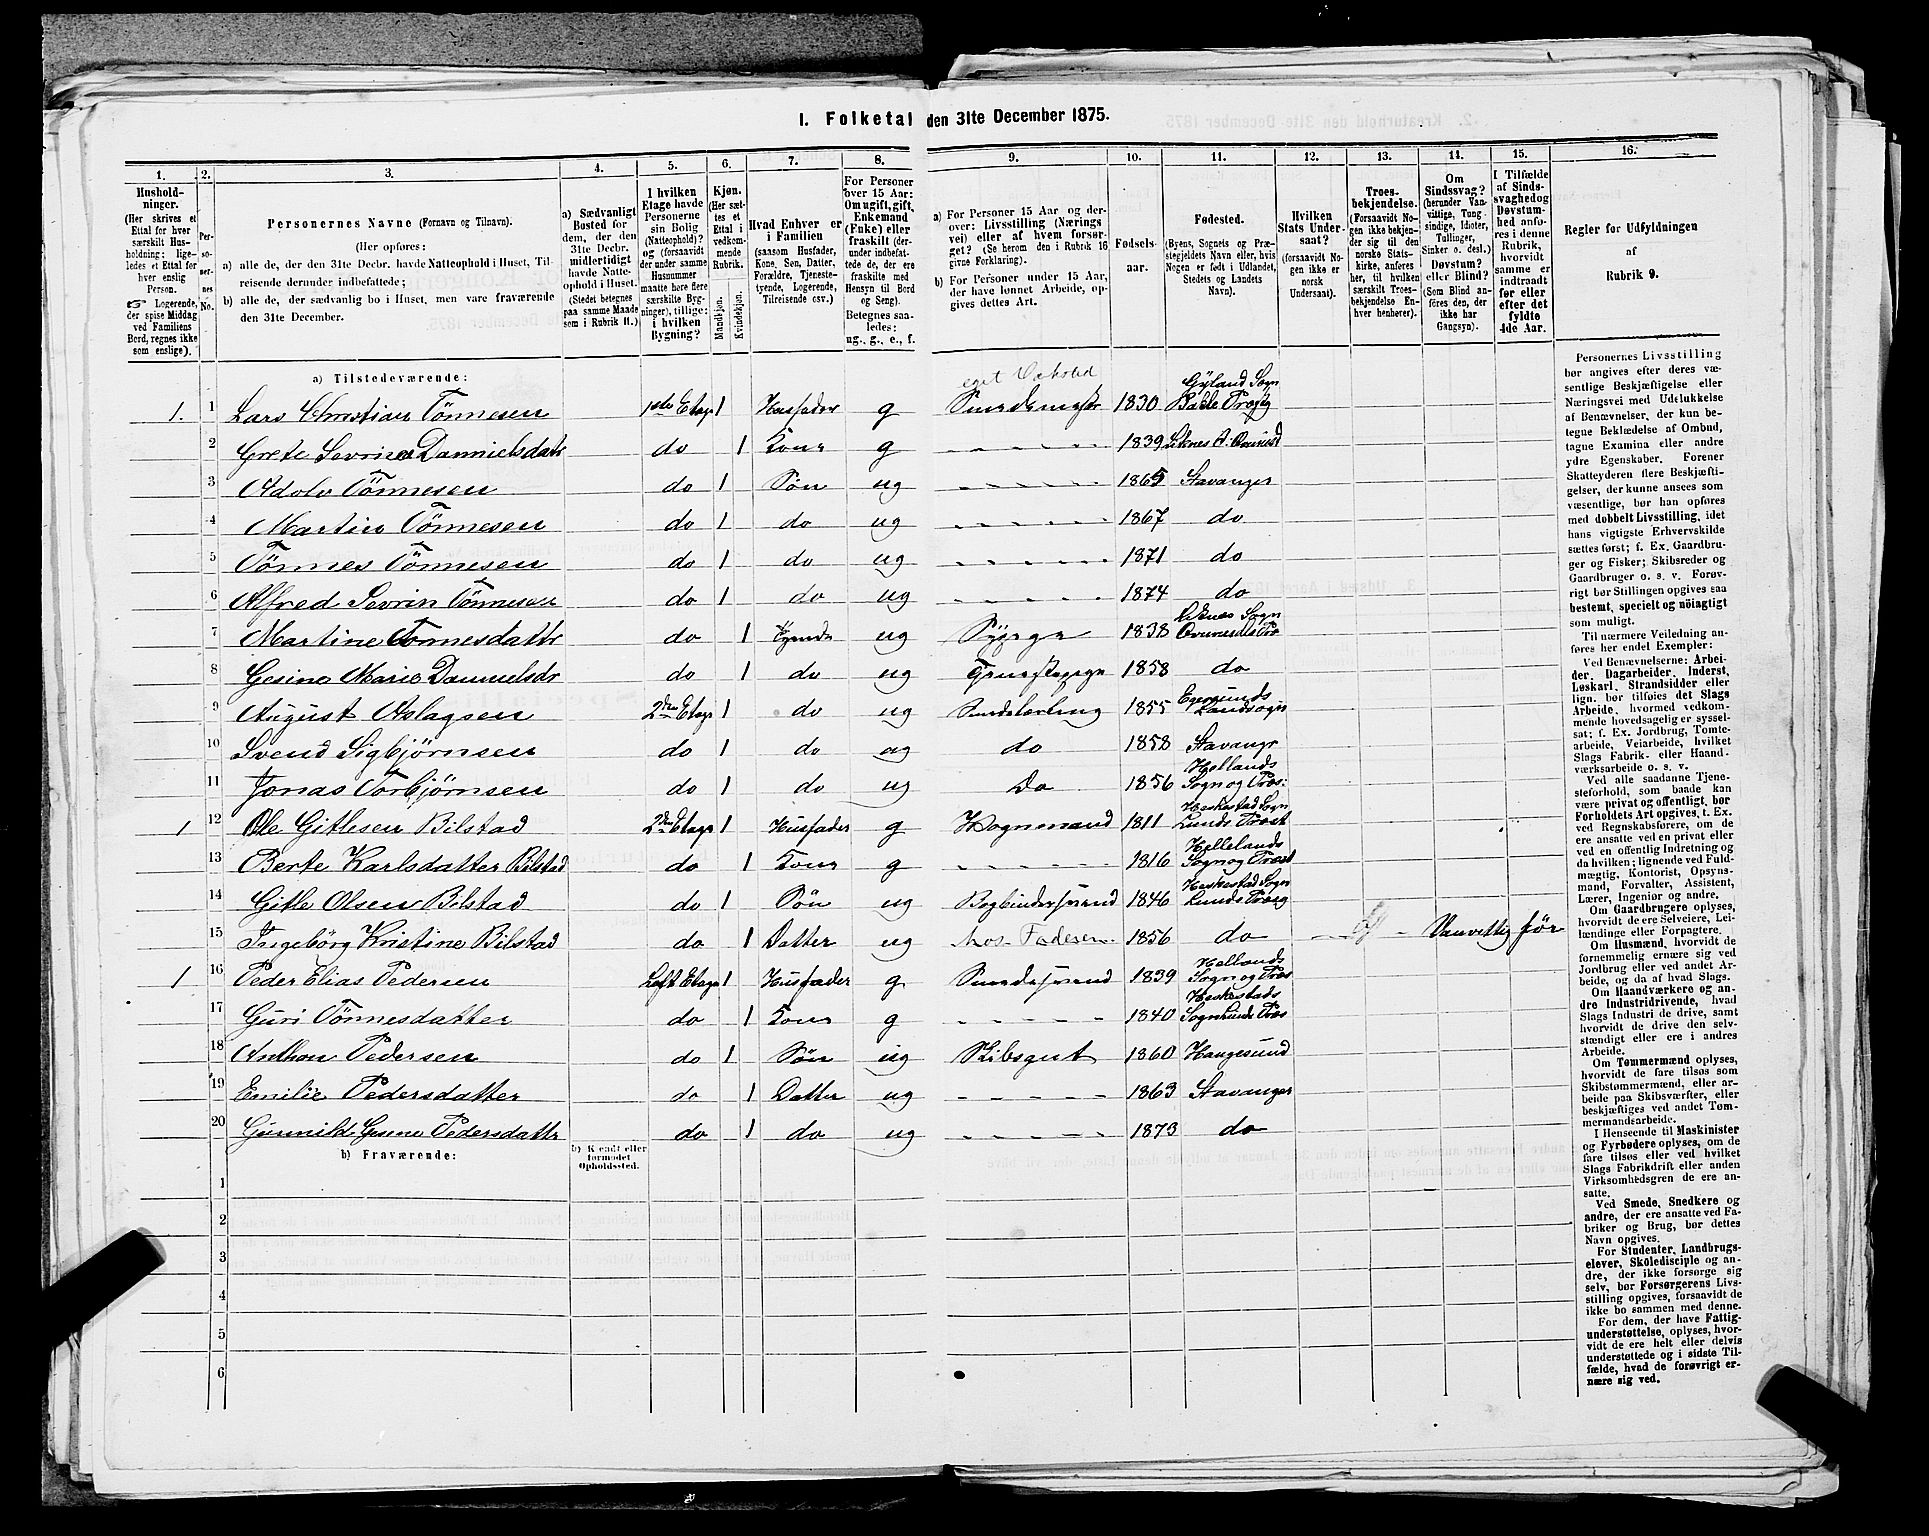 1. Folketal den 31te December 1875.
1. 2. 3. 4. 5. 6. 7. 8. 9. 10. 11. 12. 13. 14. 15. 16.
Hushold-
ninger.
(Her skrives et
Ettal for hver
særskilt Hus-
holdning; lige-
ledes et Ettal for
hver enslig
Person.
☞ Logerende,
der spise Middag
ved Familiens
Bord, regnes ikke
som enslige).
Per-
so-
ner-
nes
No.
Personernes Navne (Fornavn og Tilnavn).
(Her opføres:
a) alle de, der den 31te Decbr. havde Natteophold i Huset, Til-
reisende derunder indbefattede;
b) alle de, der sædvanlig bo i Huset, men vare fraværende
den 31te December.
a) Sædvanligt
Bosted for
dem, der den
31te Decbr.
midlertidigt
havde Natte-
ophold i Huset.
(Stedet betegnes
paa samme Maade
som i Rubrik 11.)
I hvilken
Etage havde
Personerne
sin Bolig
(Natteophold)?
og (forsaavidt
der under samme
Husnummer
maatte høre flere
særskilte Byg-
ninger), tillige:
i hvilken
Bygning?
Kjøn.
(Her sæt-
tes et
Ettal i
vedkom-
mende
Rubrik.
Mandkjøn.
Kvindekjøn.
Hvad Enhver er
i Familien
(saasom Husfader,
Kone, Søn, Datter,
Forældre, Tjeneste-
tyende, Logerende,
Tilreisende osv.)
For Personer
over 15 Aar:
Om ugift, gift,
Enkemand
(Enke) eller
fraskilt (der-
under indbefat-
tede de, der ere
fraskilte med
Hensyn til Bord
og Seng).
Betegnes saa-
ledes:
ug., g., e., f.
a) For Personer 15 Aar og der-
over: Livsstilling (Nærings
vei) eller af hvem forsør-
get? (Se herom den i Rubrik 16
givne Forklaring).
b) For Personer under 15 Aar,
der have lønnet Arbeide, op-
gives dettes Art.
Fødsels-
aar.
Fødested.
(Byens, Sognets og Præ-
stegjeldets Navn eller, hvis
Nogen er født i Udlandet,
Stedets og Landets
Navn).
Hvilken
Stats Under-
saat?
(forsaavidt No-
gen ikke er
norsk
Undersaat).
Troes-
bekjendelse.
(Forsaavidt No-
gen ikke bekjen-
der sig til den
norske Stats-
kirke, anføres
her, til hvilken
særskilt Troes-
bekjendelse En-
hver henhører).
Om
Sindssvag?
(herunder Van-
vittige, Tung-
sindige, Idioter,
Tullinger,
Sinker o. desl.)
Døvstum?
eller Blind?
(Som Blind an-
føres den, der
ikke har
Gangsyn).
I Tilfælde
af Sinds-
svaghed og
Døvstum-
hed anfø-
res i denne
Rubrik,
hvorvidt
samme er
indtraadt
før eller
efter det
fyldte
4de Aar.
Regler for Udfyldningen
af
Rubrik 9.
a) Tilstedeværende:
eget Værksted
Gyland Sogn
1. 1 Lars Christian Tönnesen 1ste Etage 1 Husfader g Smedemestr 1830 Bakke Præstg
2 Grete Sevrine Dannielsdatr do 1 Kone g 1839
3 Adolv Tönnesen do 1 Søn ug 1865 Stavanger
4 Martin Tönnesen do 1 do ug 1867 do
5 Tönnes Tönnesen do 1 do ug 1871 do
6 Alfred Sevrin Tönnesen do 1 do ug 1874 do
7 Martine Tönnesdattr do 1 ug 1838
8 Gesine Marie Dannielsdr do 1 do ug 1858 do
Egersunds
9 August Aslagsen 2den Etage 1 do ug Smedelærling 1855 Landsogn
10 Svend Sigbjørnsen do 1 do ug do 1858 Stavangr
Hellands
11 Jonas Torbjørnsen do 1 do ug Do 1856 Sogn og Præs:
Heskestad Sogn
1 12 Ole Gitlesen Bilstad 2den Etage 1 Husfader g Vognmand 1811 Lunds Præst
Hellelands
13 Berte Karlsdatter Bilstad do 1 Kone g 1816 Sogn og Præst
Heskestad Sogn
14 Gitle Olsen Bilstad do 1 Søn ug Bogbindersvend 1846 Lunds Præsg
15 Ingebörg Kristine Bilstad do 1 Datter ug hos Faderen 1856 do Vanvittig för
Hellands
1 16 Peder Elias Pedersen Loft Etage 1 Husfader g Smedesvend 1839 Sogn og Præs
Heskestads
17 Guri Tönnesdatter do 1 Kone g 1840 Sogn Lunds Præs
18 Anthon Pedersen do 1 Søn ug Skibsgut 1860 Haugesund
19 Emilie Pedersdatter do 1 Datter ug 1863 Stavanger
20 Gunnilde Gesene Pedersdattr do 1 do ug 1873 do
b) Fraværende:
b) Kjendt eller
formodet
Opholdssted.
1
2
3
4
5
6
Personernes Livsstilling
bør angives efter deres væ-
sentlige Beskjæftigelse eller
Næringsvei med Udelukkelse
af Benævnelser, der kun be-
tegne Beklædelse af Ombud,
tagne Examina eller andre
ydre Egenskaber. Forener
Skatteyderen flere Beskjæfti-
gelser, der kunne ansees som
væsentlige, bør han opføres
med dobbelt Livsstilling, idet
hans vigtigste Erhvervskilde
sættes først; f. Ex. Gaardbru-
ger og Fisker; Skibsreder og
Gaardbruger o. s. v. Forøv-
rigt bør Stillingen opgives saa
bestemt, specielt og nöiagtigt
som muligt.
Til nærmere Veiledning an-
føres her endel Exempler:
Ved Benævnelserne: Arbei-
der, Dagarbeider, Inderst,
Løskarl, Strandsidder eller
lign. bør tilføies det Slags
Arbeide, hvormed vedkom-
mende hovedsagelig er syssel-
sat; f. Ex. Jordbrug, Tomte-
arbeide, Veiarbeide, hvilket
Slags Fabrik- eller Haand-
værksarbeide o. s. v.
Ved alle saadanne Tjene-
steforhold, som baade kan
være privat og offentligt, bør
Forholdets Art opgives, f. Ex.
ved Regnskabsførere, om de
ere ansatte ved en privat eller
ved en offentlig Indretning og
da hvilken; lignende ved Fuld-
mægtig, Kontorist, Opsyns-
mand, Forvalter, Assistent,
Lærer, Ingeniør og andre.
Om Gaardbrugere oplyses,
hvorvidt de ere Selveiere, Lei-
lændinge eller Forpagtere.
Om Husmænd, hvorvidt de
fornemmelig ernære sig ved
Jordbrug eller ved andet Ar-
beide, og da af hvad Slags.
Om Haandværkere og an-
dre Industridrivende, hvad
Slags Industri de drive, samt
hvorvidt de drive den selv-
stændigt eller ere i andres
Arbeide.
Om Tømmermænd oplyses,
hvorvidt de fare tilsøs som
Skibstømmermænd, eller ar-
beide paa Skibsværfter, eller
beskjæftiges ved andet Tøm-
mermandsarbeide.
I Henseende til Maskinister
og Fyrbødere oplyses, om de
fare tilsøs eller ved hvilket
Slags Fabrikdrift eller anden
Virksomhedsgren de ere an-
satte.
Ved Smede, Snedkere og
andre, der ere ansatte ved Fa-
briker og Brug, bør dettes
Navn opgives.
For Studenter, Landbrugs-
elever, Skoledisciple og an-
dre, der ikke forsørge sig
selv, bør Forsørgerens Livs-
stilling opgives, forsaavidt de
ikke bo sammen med denne.
For dem, der have Fattig-
understøttelse, oplyses, hvor-
vidt de ere helt eller delvis
understøttede og i sidste Til-
fælde, hvad de forøvrigt er-
nære sig ved.